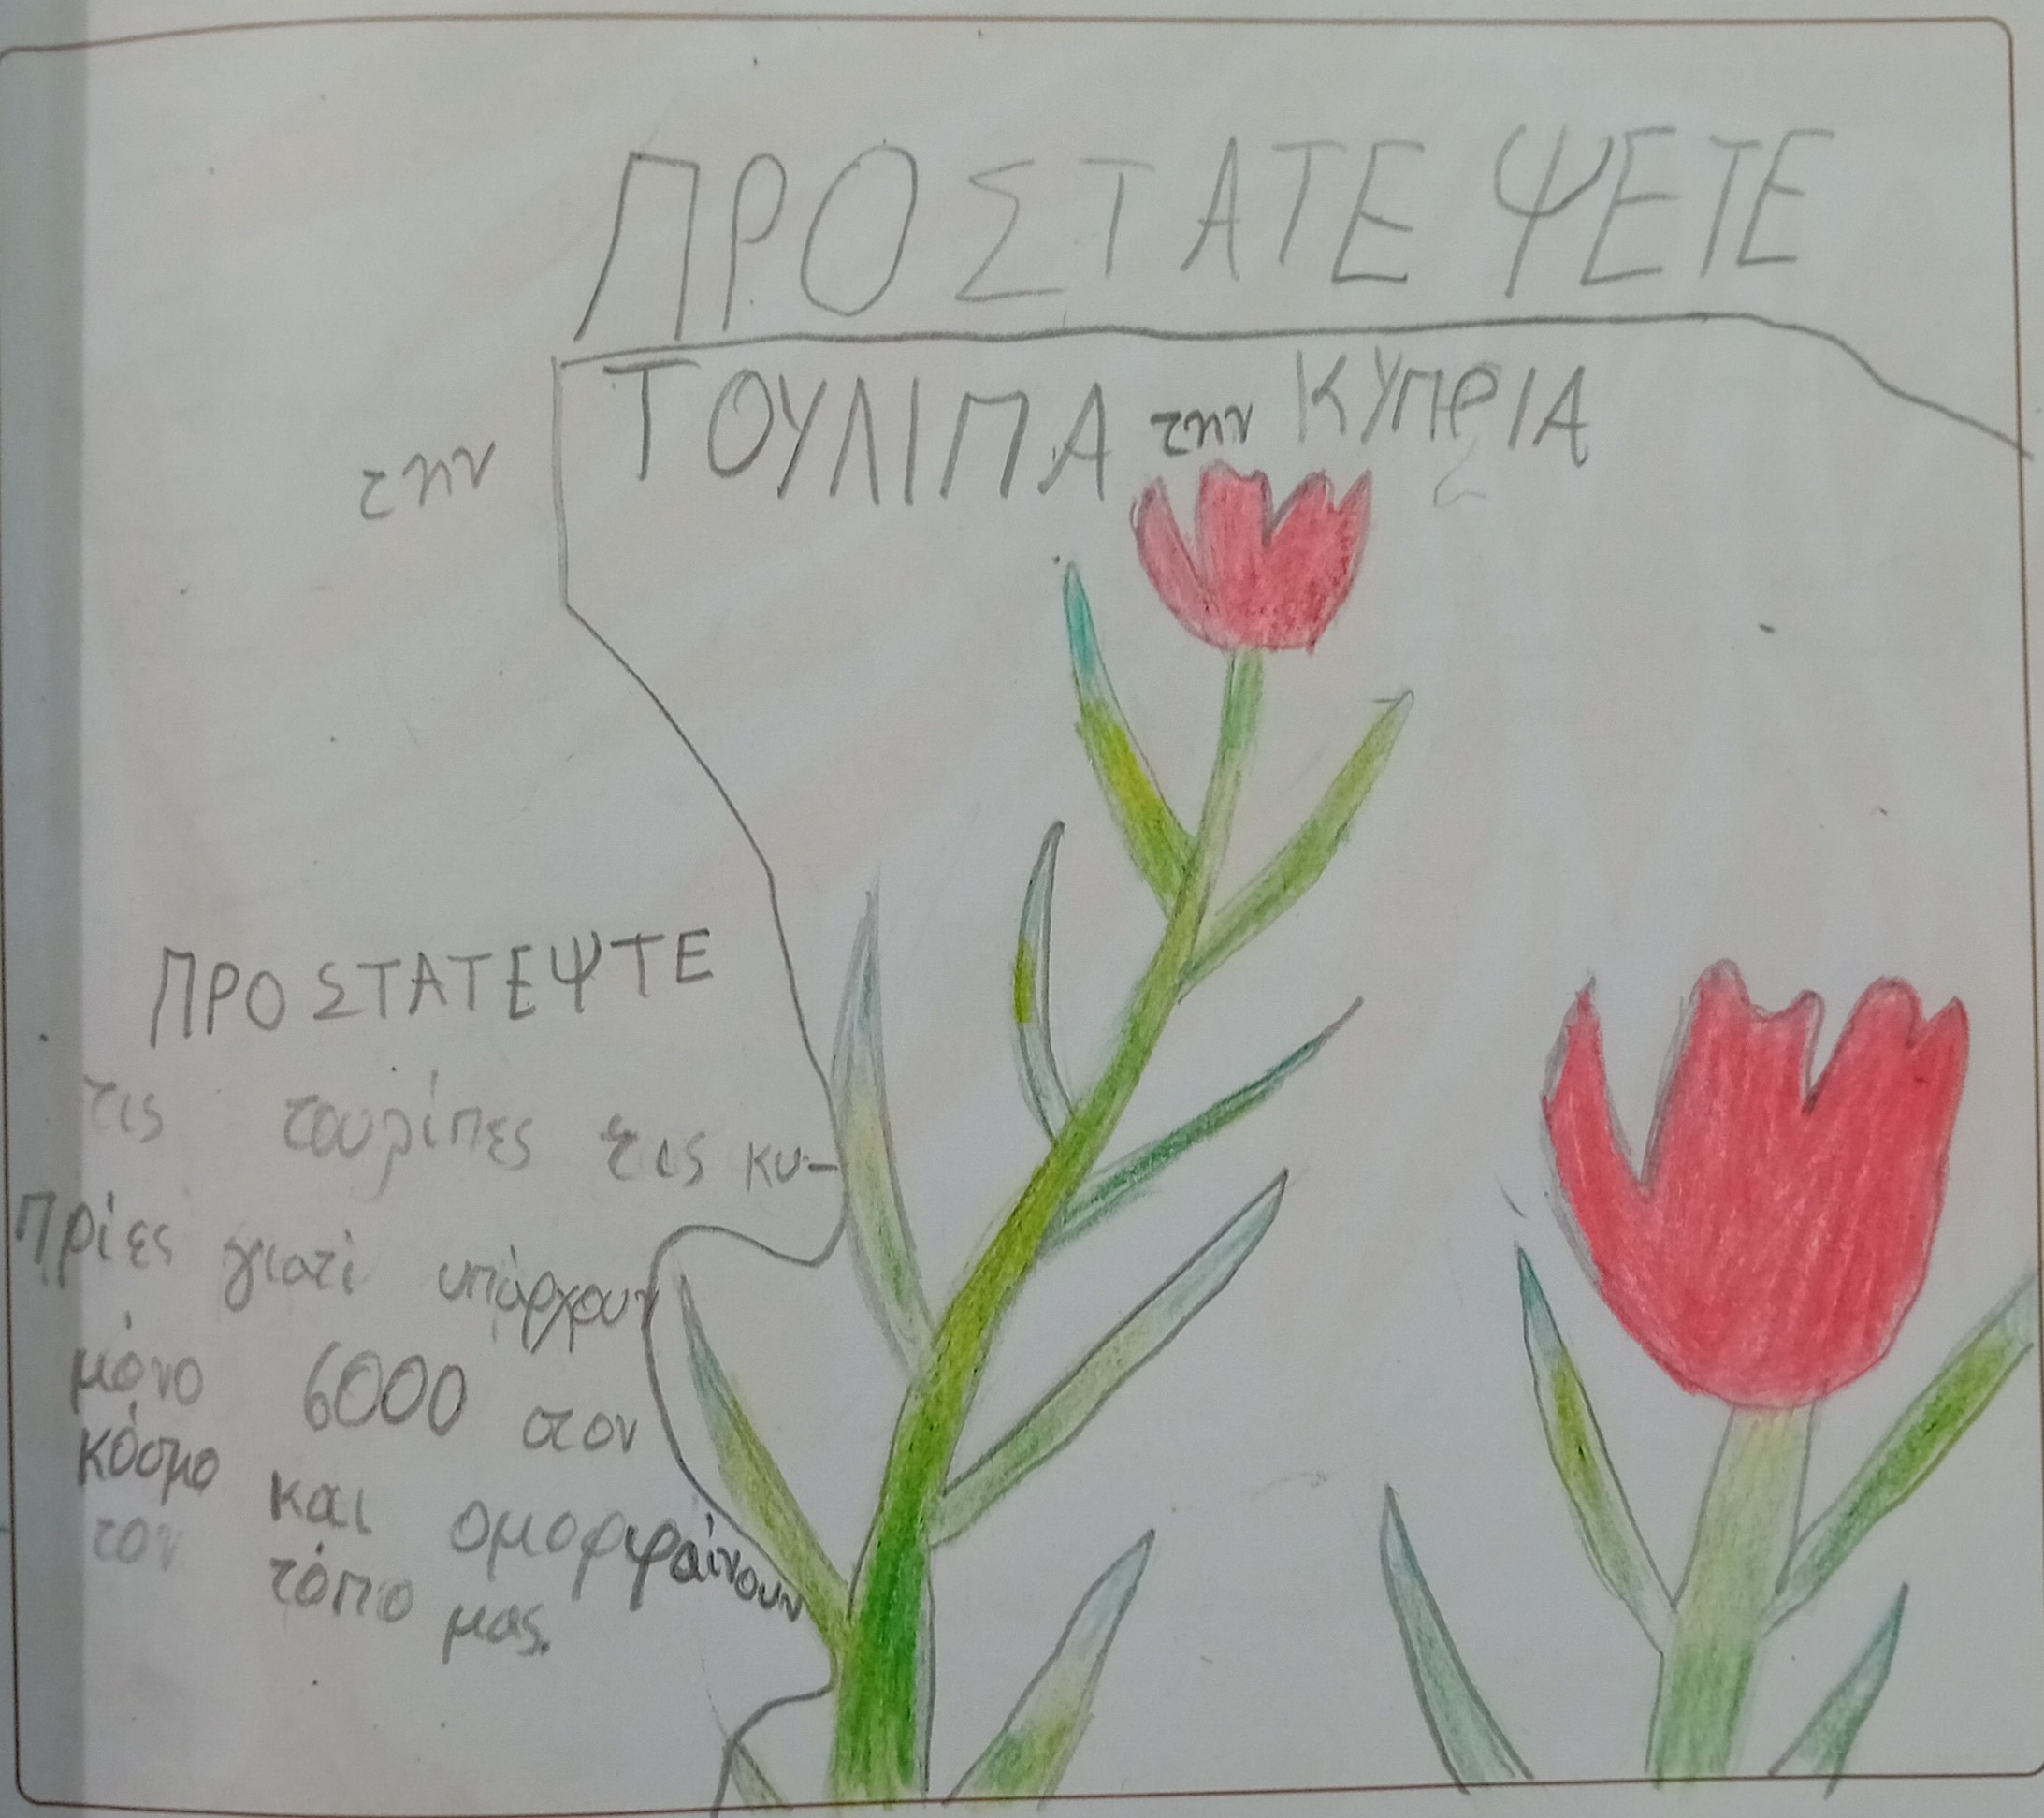 ΠΡΟΣΤΑΤΕΨΕΤΕ
την ΤΟΥΛΙΠΑ την ΚΥΠΡΙΑ
ΠΡΟΣΤΑΤΕΨΤΕ
τις τουλίπες τις κυ-
πρίες γιατί υπάρχουν
μόνο 6000 στον
κόσμο και ομορφαίνουν
τον τόπο μας.